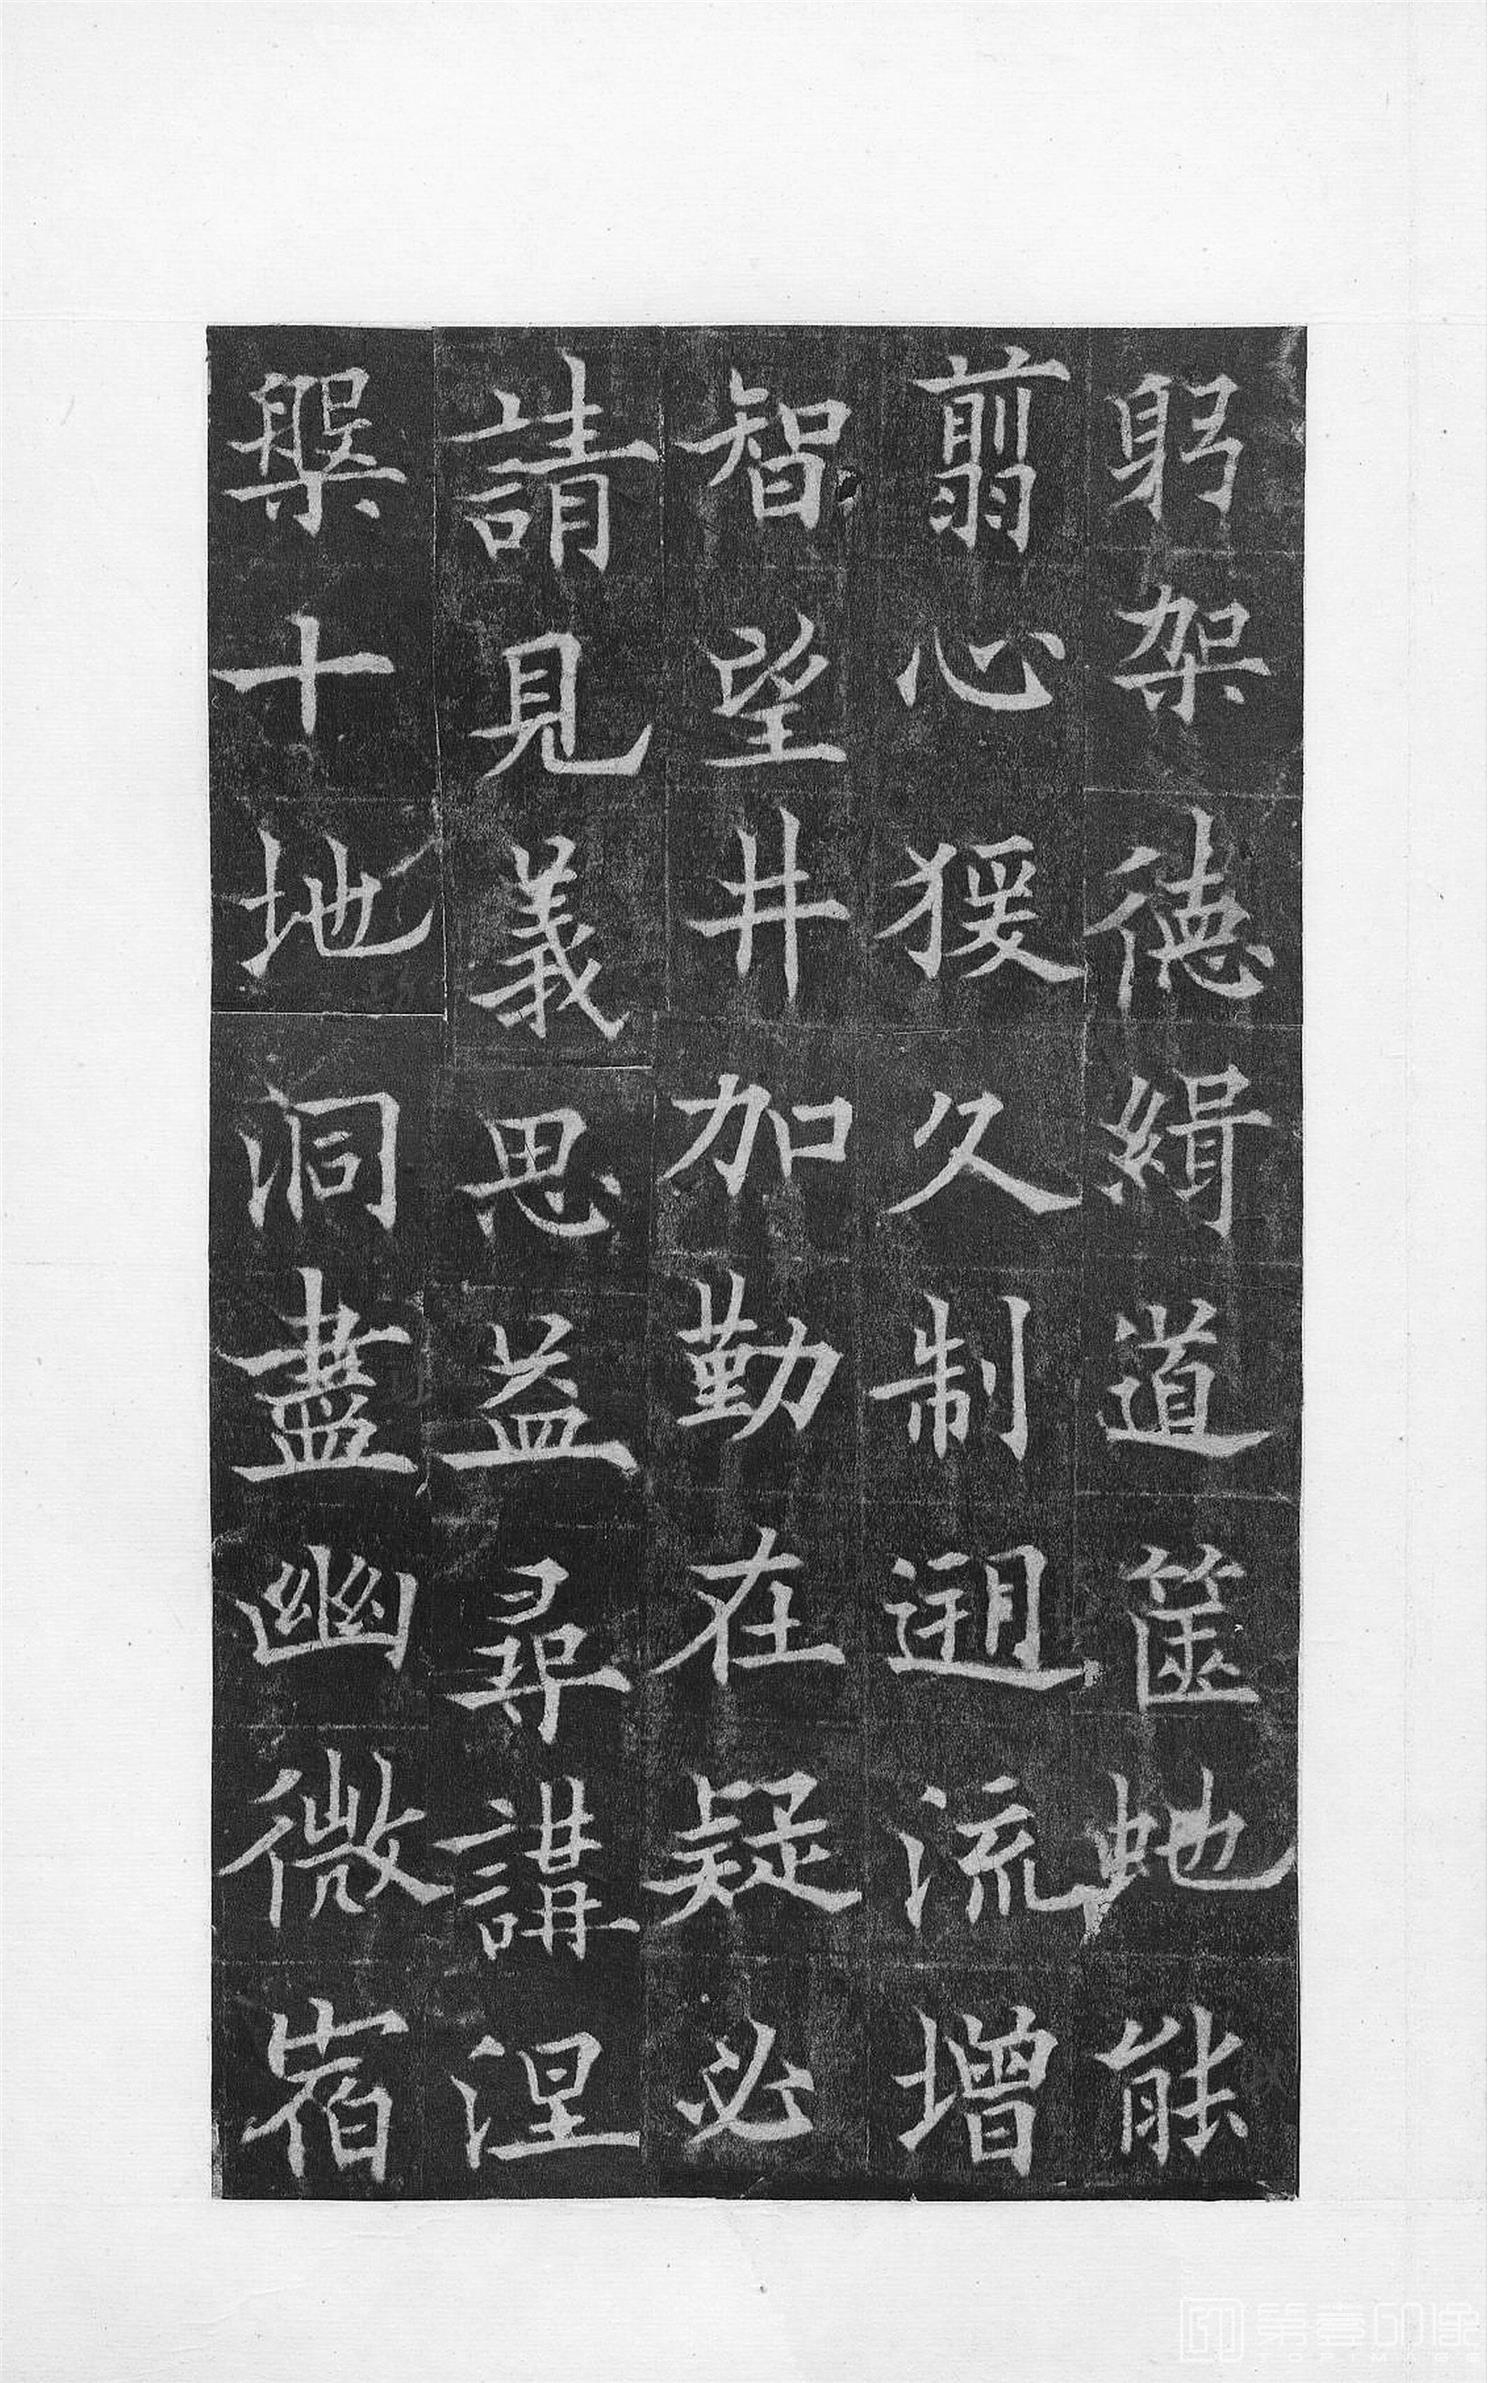 躬架德緝道篋虵能
翦心猨久制遡流增
智望井加勤在疑必
請見義思益尋講涅
槃十地洞盡幽微宿
第壹印像
TOPIMAGE